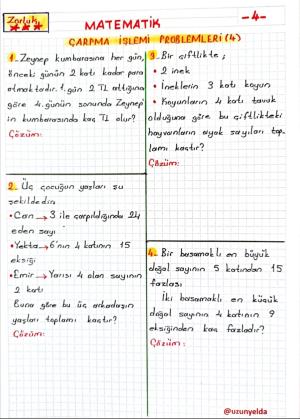 Zorluk
★★★
MATEMATİK
-4-
ÇARPMA İŞLEMİ PROBLEMLERİ (4)
1. Zeynep kumbarasına her gün,
önceki günün 2 katı kadar para
atmaktadır. 1. gün 2 TL attığına
göre 4. günün sonunda Zeynep'
in kumbarasında kaç TL olur?
Çözüm:
2. Üç çocuğun yaşları şu
şekildedir:
• Can → 3 ile çarpıldığında 24
eden sayı
• Yekta → 6'nın 4 katının 15
eksiği
• Emir → Yarısı 4 olan sayının
2 katı
Buna göre bu üç arkadaşın
yaşları toplamı kaçtır?
Çözüm:
3. Bir çiftlikte;
• 2 inek
• İneklerin 3 katı koyun
• Koyunların 4 katı tavuk
olduğuna göre bu çiftlikteki
hayvanların ayak sayıları top
lamı kaçtır?
Çözüm:
4. Bir basamaklı en büyük
doğal sayının 5 katından 15
fazlası
İki basamaklı en küçük
doğal sayının 4 katının 9
eksiğinden kaç fazladır?
Çözüm:
@uzunyelda